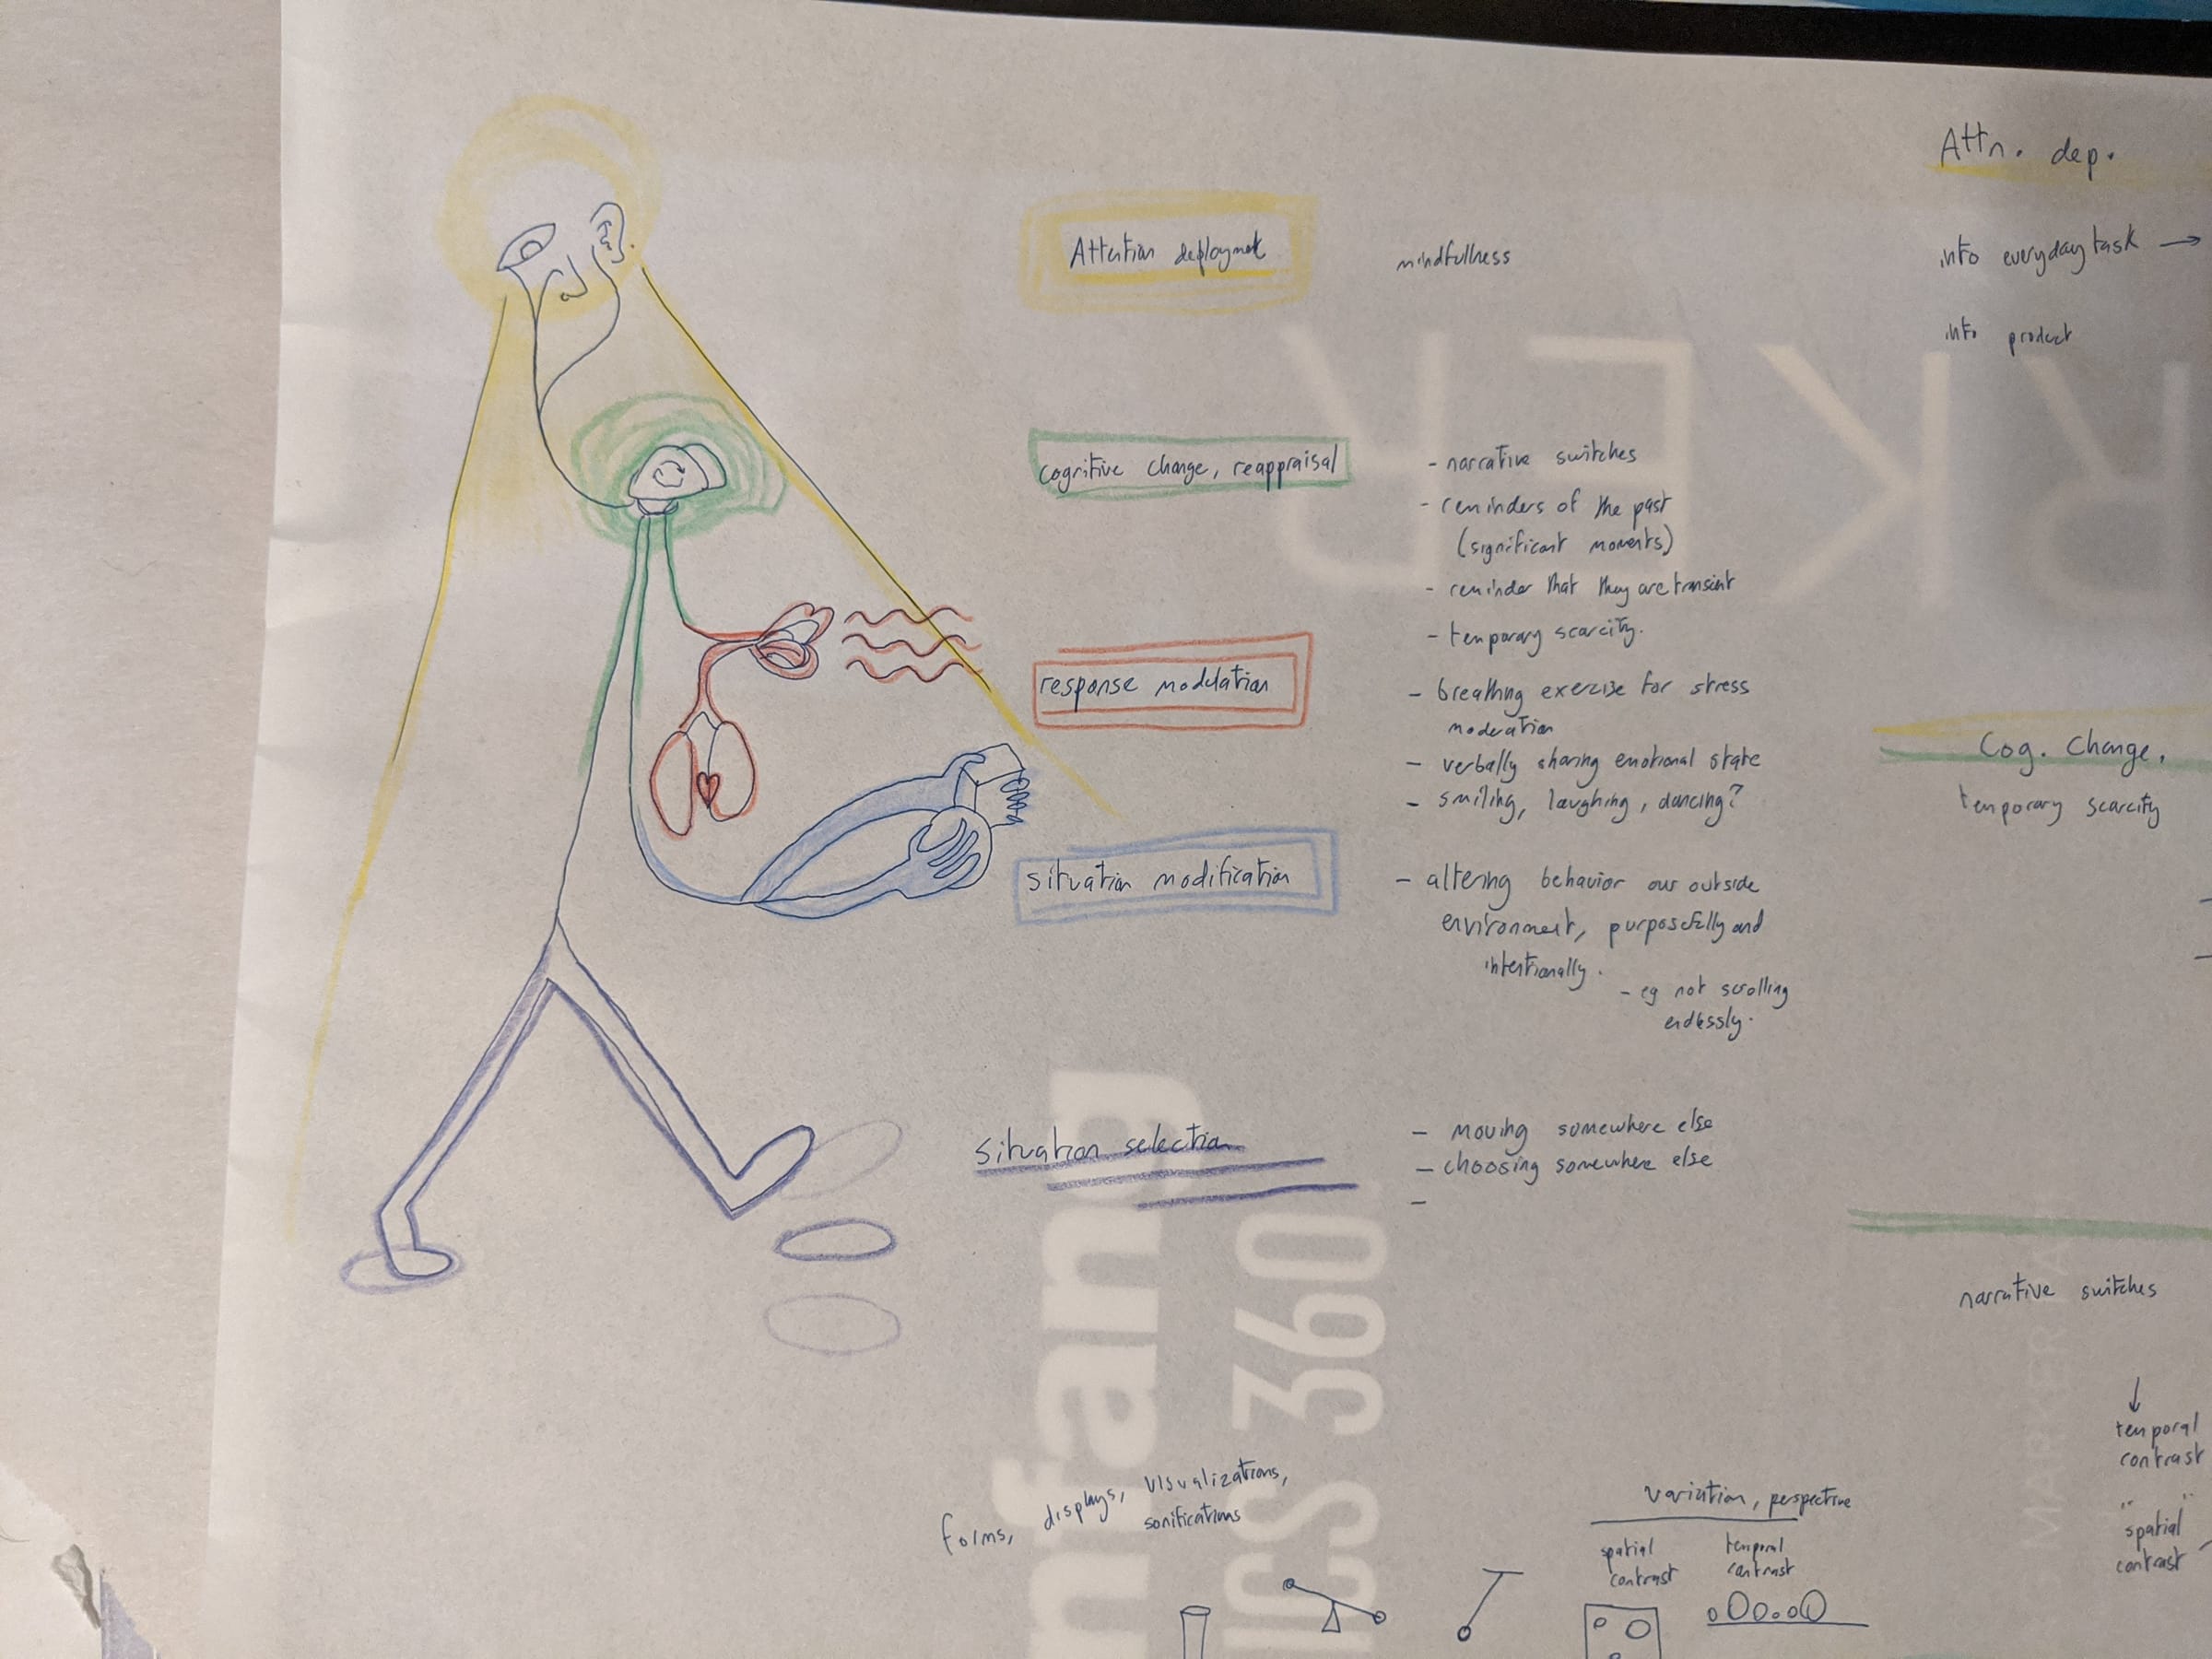 Attention deployment
mindfullness
cognitive change, reappraisal
- narrative switches
- reminders of the past
(significant moments)
- reminder that they are transient
- temporary scarcity.
response modulation
- breathing exercise for stress
moderation
- verbally sharing emotional state
- smiling, laughing, dancing?
situation modification
- altering behavior our outside
environment, purposefully and
intentionally.
- eg not scrolling
endlessly.
situation selection
- moving somewhere else
- choosing somewhere else
-
forms, displays, visualizations,
sonifications
variation, perspective
spatial
contrast
temporal
contrast
Attn. dep.
into everyday task →
into product
Cog. Change.
temporary scarcity
narrative switches
↓
temporal
contrast
"spatial"
contrast
RKER
nfany
ICS 360